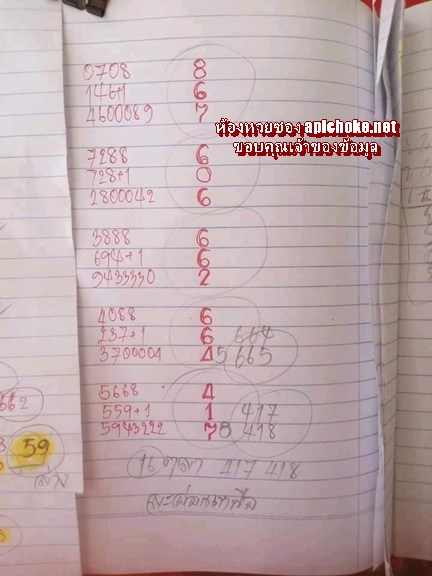 0708 8
146+1 6
4600089 7
ห้องหวยซอง apichoke.net
ขอบคุณเจ้าของข้อมูล
7288 6
728+1 0
2800042 6
3888 6
694+1 6
9433330 2
4088 6
237+1 6 664
3700004 45 665
5668 4
559+1 1 417
5943222 78 418
16 ตุลา 417 418
59
ล่าง